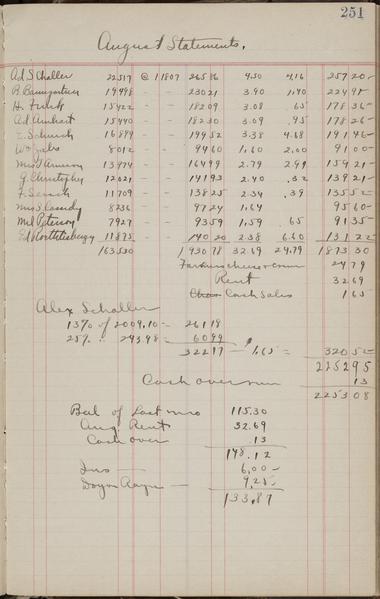 251
August Statements.
Ad Schaller 22517 @ 11807 265 86 4.50 4.16 257 20
B. Baumgartner 19498 - - 230 21 3.90 1.40 224 91
H. Funk 15422 - - 182 09 3.08 .65 178 36
Ad. Amhart 15440 - - 182 30 3.09 .95 178 26
E. Schurch 16899 - - 199 52 3.38 4.68 191 46
8012 - - 94 60 1.60 2.00 91 00
13974 - - 164 99 2.79 2.99 159 21
G. Christophy 12021 - - 141 93 2.40 .32 139 21
11709 - - 138 25 2.34 .39 135 52
Mrs J Cassidy 8236 97 24 1.64 95 60
Mrs Peterson 7927 93 59 1.59 .65 91 35
Ed 11875 140 20 2.38 6.60 131 22
163530 1930 78 32 69 24.79 1873 30
24 79
Rent 32 69
Cash Sales 1 65
Alex Schaller
13% of 2009.10 - 261 18
25% " 243.98 - 60 99
322 17 - 1.65 = 320 52
2252 95
Cash over run 13
2253 08
Bal of Last mo 115.30
Aug Rent 32.69
Cash over .13
148.12
Ins 6.00
9.25
133.87